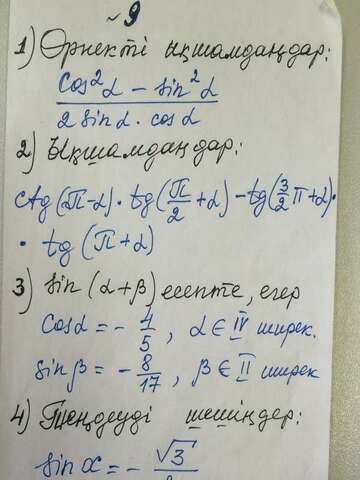 ~9
1) Өрнекті ықшамдаңдар:
cos²α - sin²α
2 sinα · cosα
2) Ықшамдаңдар:
ctg(π-α)·tg(π/2+α)-tg(3/2π+α)·
· tg(π+α)
3) sin(α+β) есепте, егер
cosα = - 4/5, α∈IV ширек.
sinβ = - 8/17, β∈II ширек
4) Теңдеуді шешіңдер:
sin x = - √3